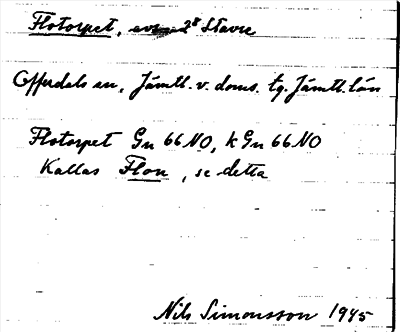 Flotorpet, 2⁸ Stavre
Offerdals sn, Jämtl. v. doms. tg. Jämtl. län
Flotorpet Gn 66 NO, k Gn 66 NO
Kallas Flon, se detta
Nils Simonsson 1945